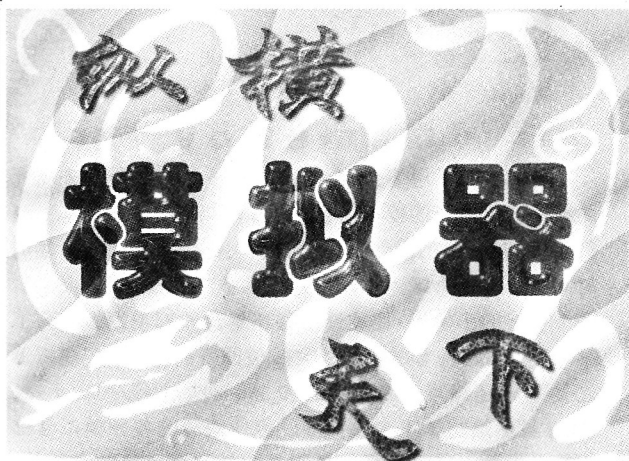 纵横
模拟器
天下